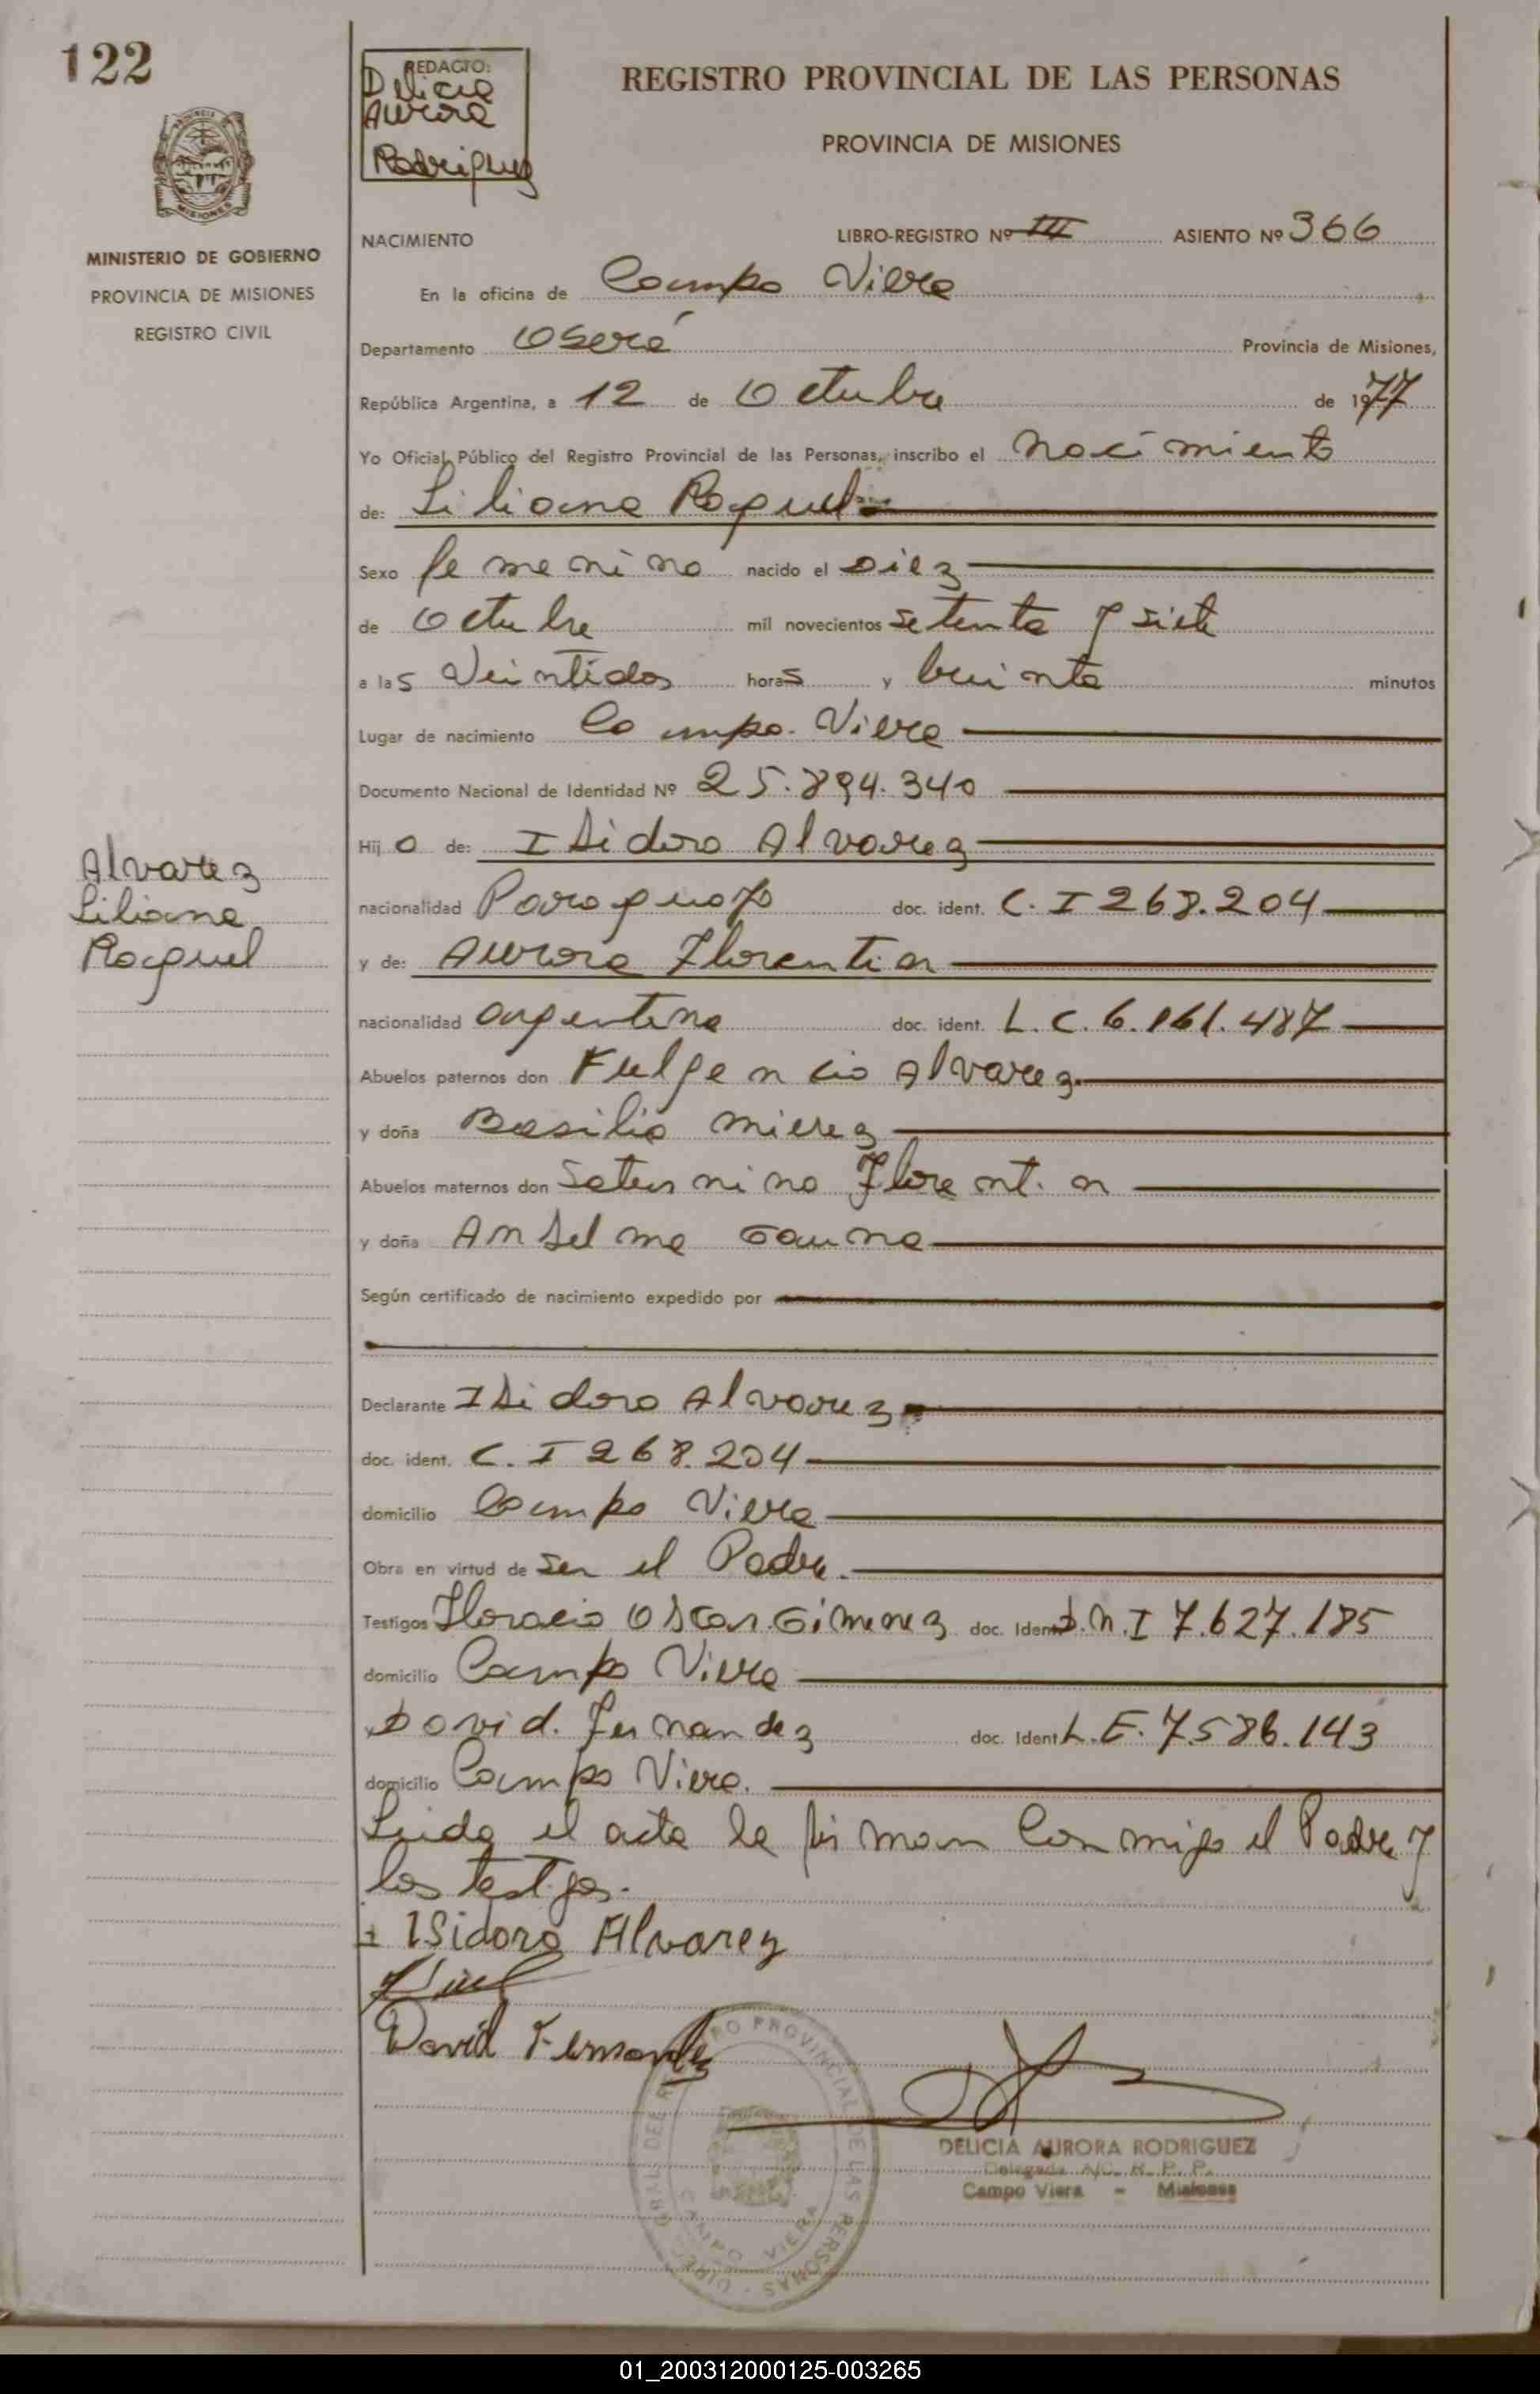 122
REDACTO:
Delicia
Aurora
Rodriguez
REGISTRO PROVINCIAL DE LAS PERSONAS
PROVINCIA DE MISIONES
MISIONES
MINISTERIO DE GOBIERNO
PROVINCIA DE MISIONES
REGISTRO CIVIL
NACIMIENTO LIBRO-REGISTRO Nº III ASIENTO Nº 366
En la oficina de Campo Viera
Departamento Oberá Provincia de Misiones,
República Argentina, a 12 de Octubre de 1977
Yo Oficial Público del Registro Provincial de las Personas, inscribo el nacimiento
de: Liliana Raquel
Sexo femenino nacido el Diez
de Octubre mil novecientos setenta y siete
a las veintidos horas y treinta minutos
Lugar de nacimiento Campo Viera
Documento Nacional de Identidad Nº 25.894.340
Hijo de: Isidoro Alvarez
Alvarez
Liliana
Raquel
nacionalidad Paraguayo doc. ident. C. I 268.204
y de: Aurora Florentin
nacionalidad argentina doc. ident. L. C. 6.161.487
Abuelos paternos don Fulgencio Alvarez
y doña Basilia Mierez
Abuelos maternos don Saturnino Florentin
y doña Anselma Gauna
Según certificado de nacimiento expedido por
Declarante Isidoro Alvarez
doc. ident. C. I 268.204
domicilio Campo Viera
Obra en virtud de ser el Padre.
Testigos Horacio Oscar Gimenez doc. Ident D.N.I 7.627.185
domicilio Campo Viera
y David Fernandez doc. Ident L.E. 7.586.143
domicilio Campo Viera.
Leida el acta la firman conmigo el Padre y
los testigos.
Isidoro Alvarez
David Fernandez
DELICIA AURORA RODRIGUEZ
Delegada A/C. R. P. P.
Campo Viera - Misiones
PROVINCIAL DE LAS PERSONAS
CAMPO VIERA
01_200312000125-003265